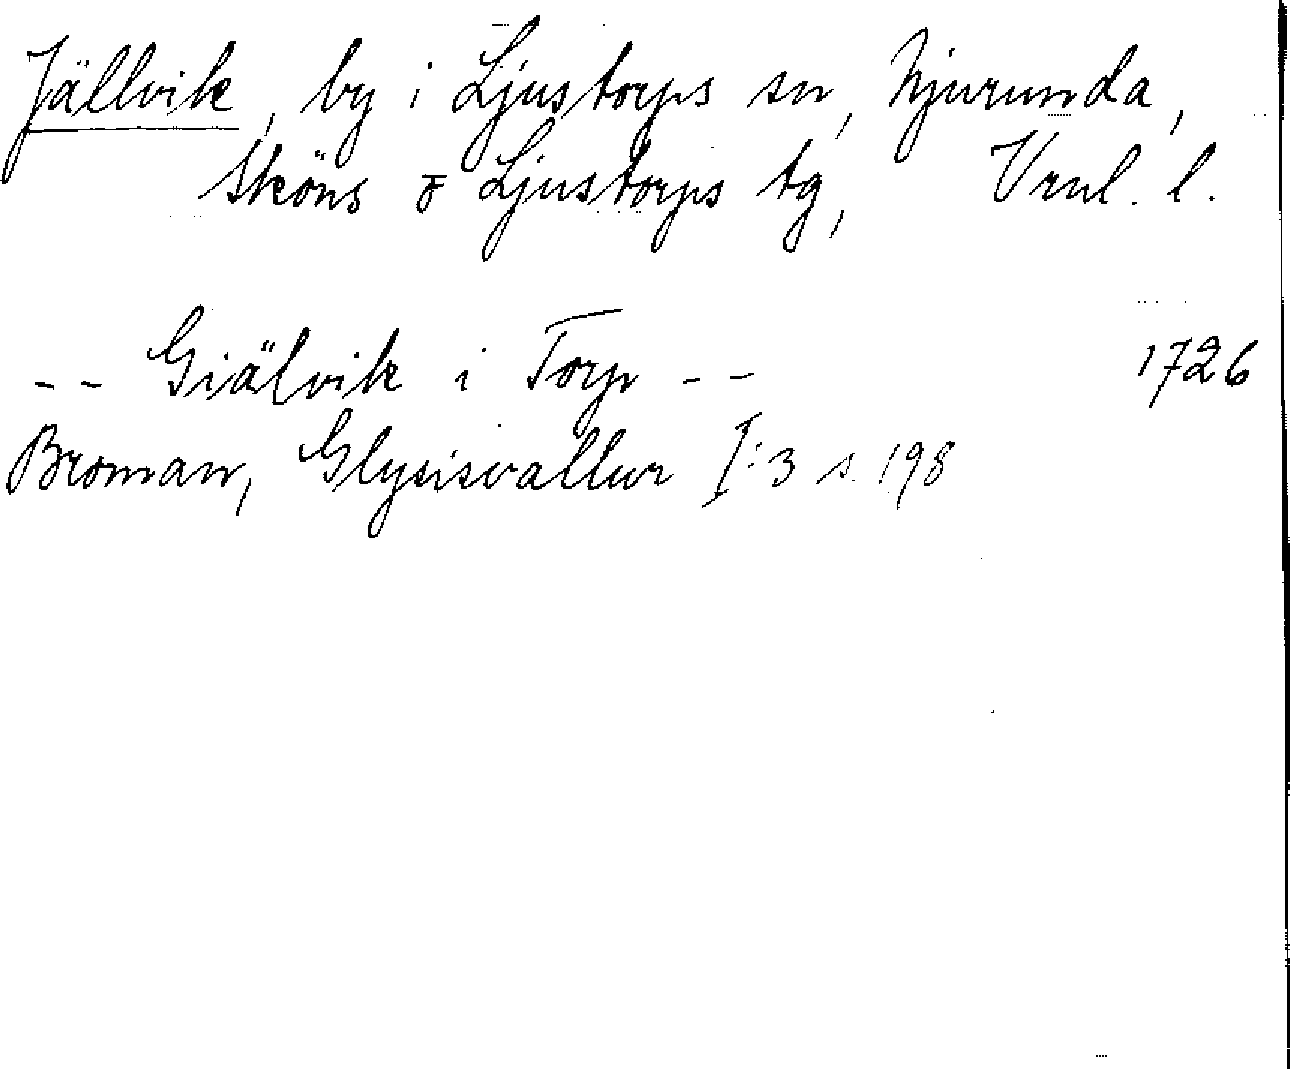 Jällvik, by i Ljustorps sn, Njurunda,
Sköns o Ljustorps tg, Vrnl. l.
-- Giälvik i Torp -- 1726
Broman, Glysisvallur I:3 s. 198